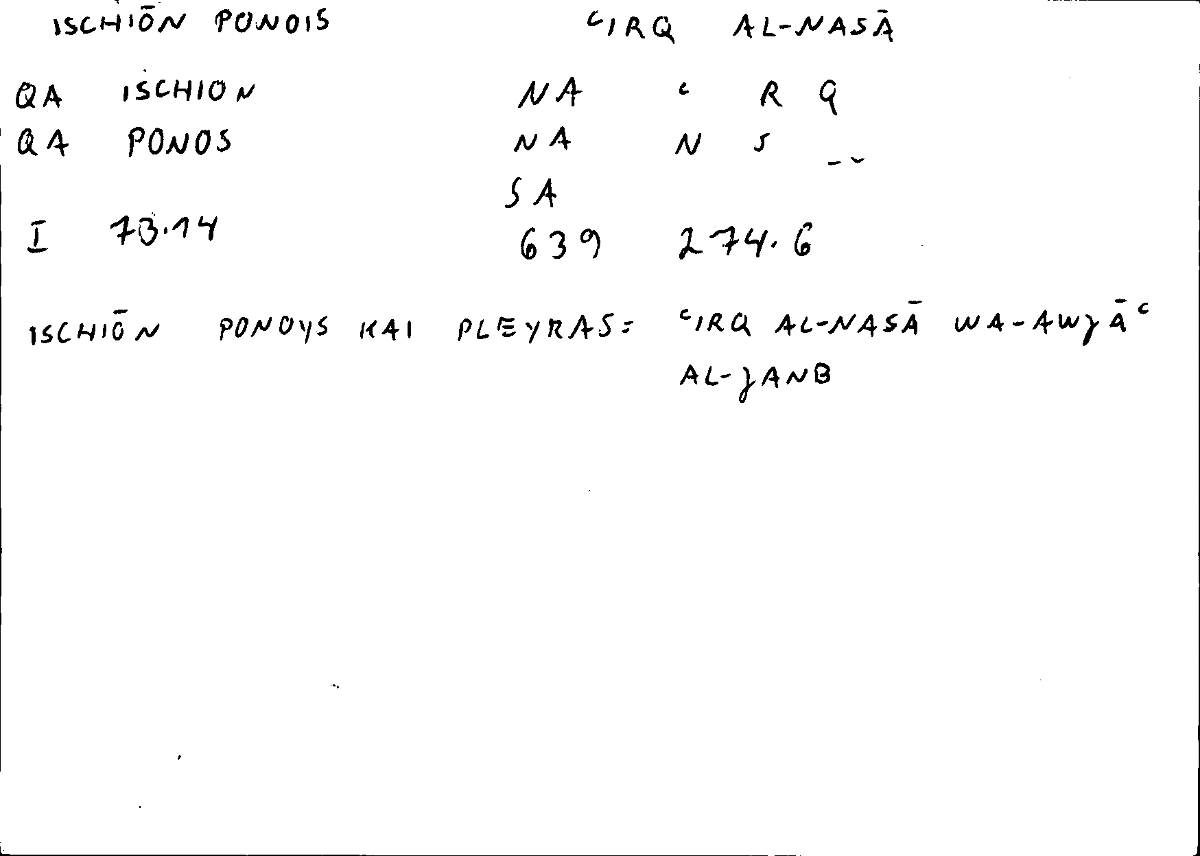 ISCHIŌN PONOIS ʿIRQ AL-NASĀ
QA ISCHION NA ʿ R Q
QA PONOS NA N S --
SA
I 73.14 639 274.6
ISCHIŌN PONOYS KAI PLEYRAS= ʿIRQ AL-NASĀ WA-AWJĀʿ
AL-JANB